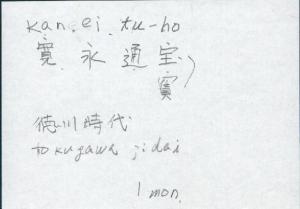 kan.ei.tu-ho
寛永通宝
寳
徳川時代
tokugawa jidai
1 mon.